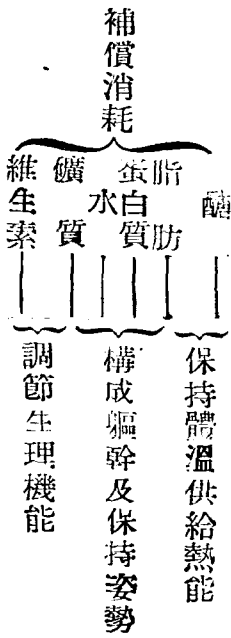 補償消耗
醣
脂肪
蛋白質
水
礦質
維生素
保持體溫供給熱能
構成軀幹及保持姿勢
調節生理機能